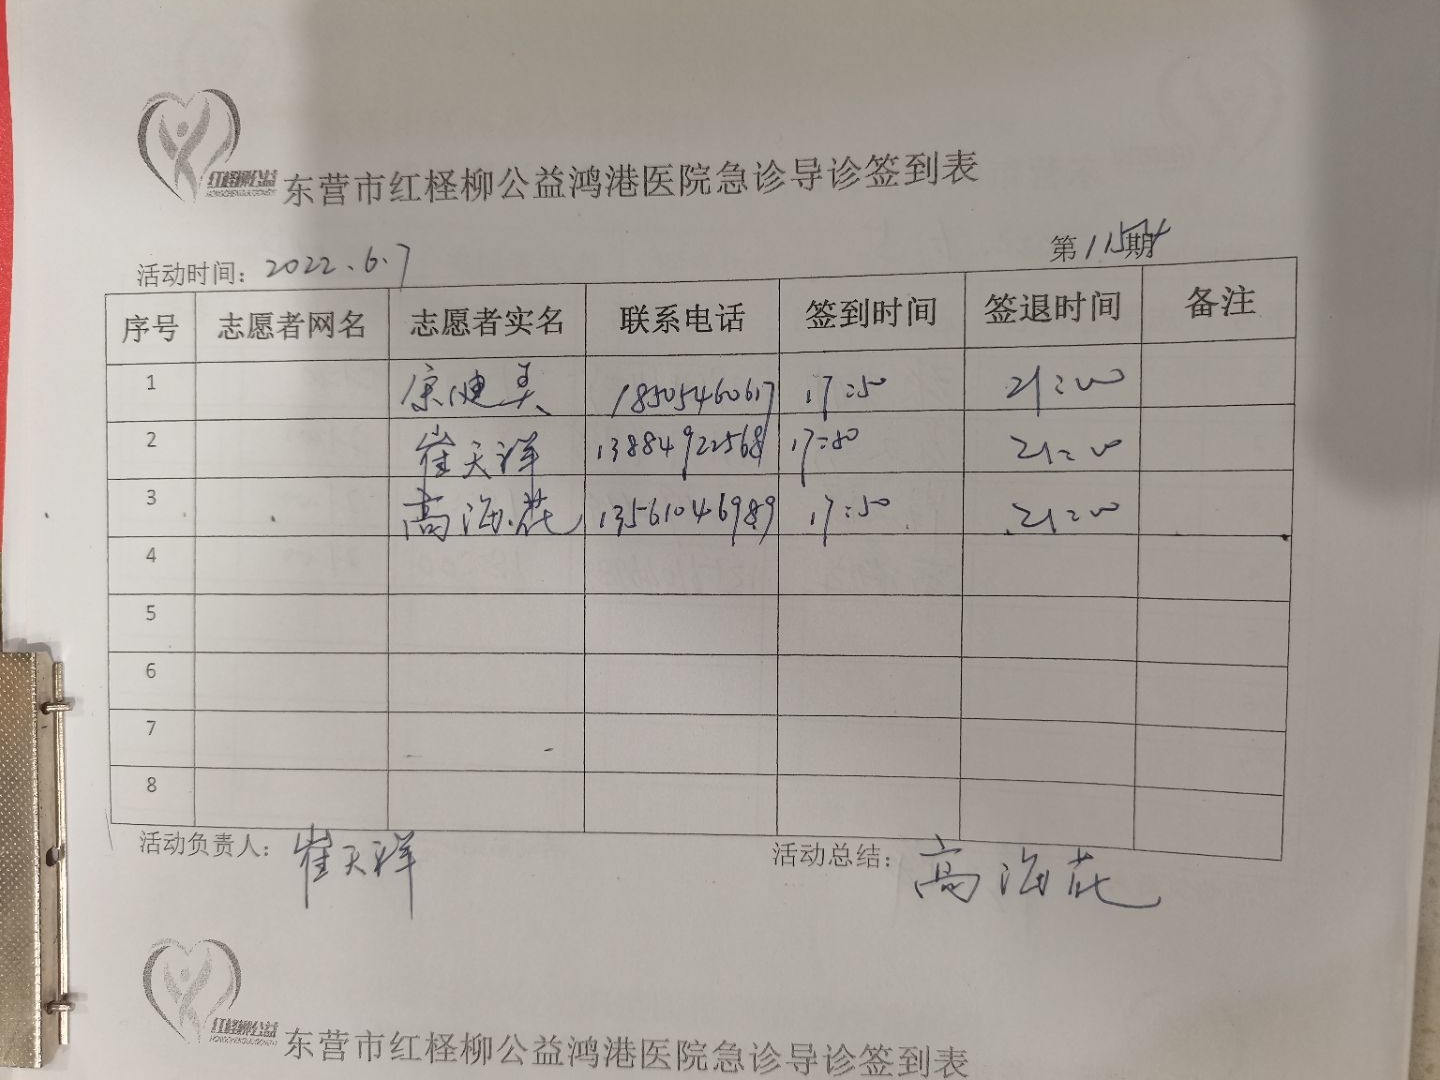 红柽柳公益
东营市红柽柳公益鸿港医院急诊导诊签到表
活动时间: 2022.6.7 第 期
序号 志愿者网名 志愿者实名 联系电话 签到时间 签退时间 备注
1 康健美 18505460617 17:50 21:00
2 崔天祥 13884922568 17:50 21:00
3 高海花 13561046989 17:50 21:00
4
5
6
7
8
活动负责人: 崔天祥 活动总结: 高海花
红柽柳公益
东营市红柽柳公益鸿港医院急诊导诊签到表